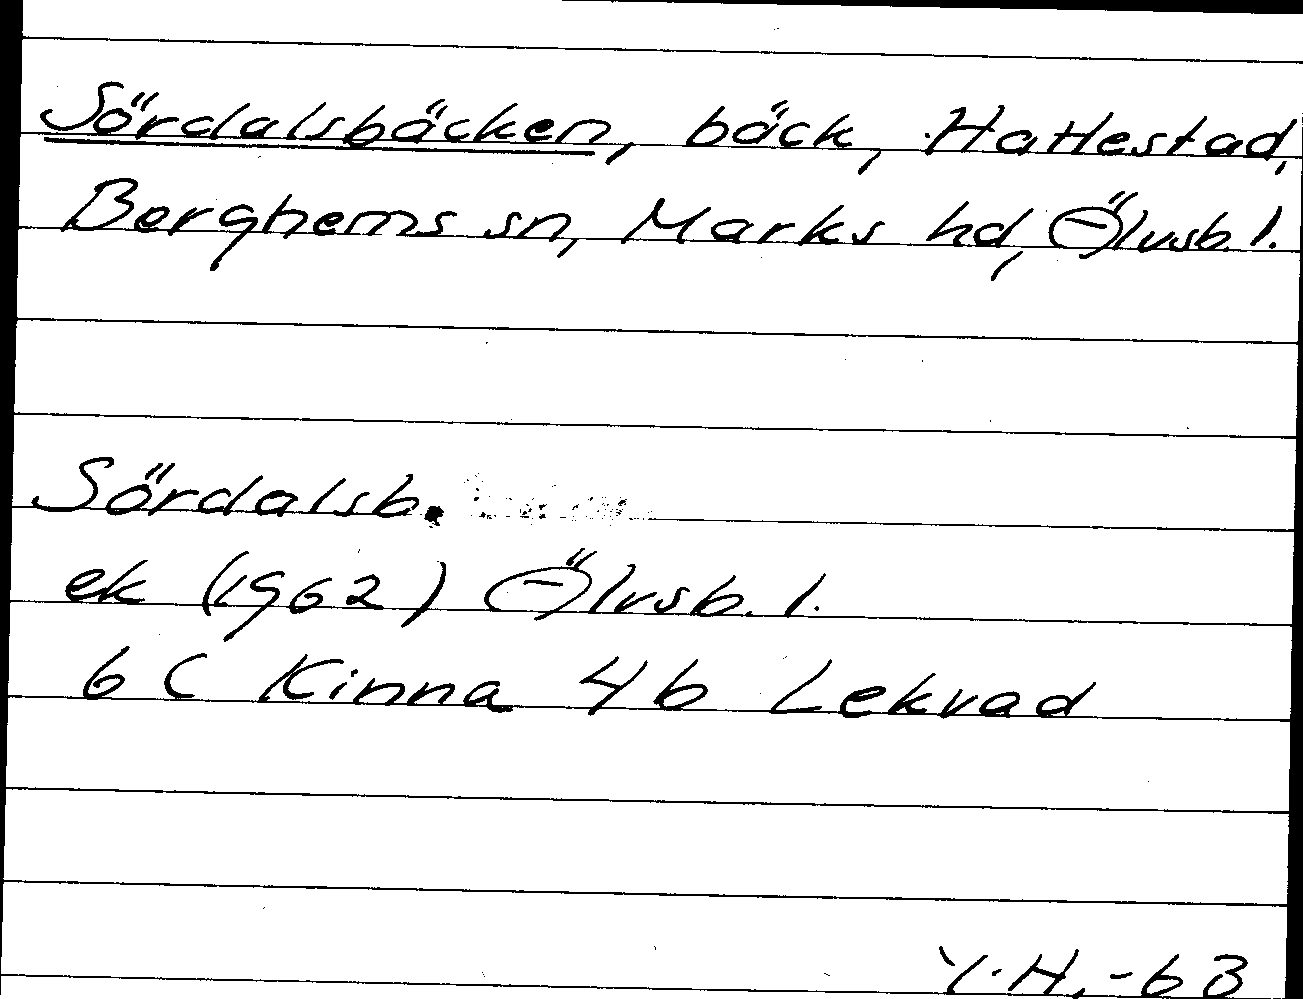 Sördalsbäcken, bäck, Hattestad,
Berghems sn, Marks hd, Älvsb. l.
Sördalsb.
ek (1962) Älvsb. l.
6 C Kinna 4 b Lekvad
Y.H. -63